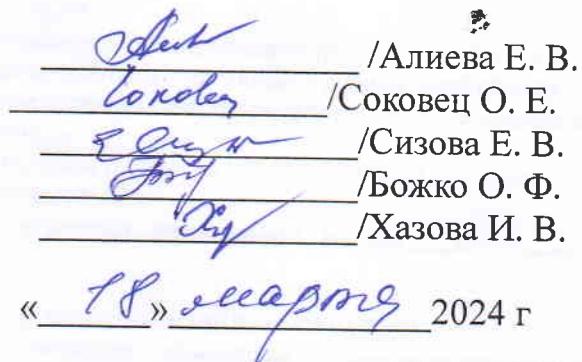 /Алиева Е. В.
Соковец /Соковец О. Е.
/Сизова Е. В.
/Божко О. Ф.
/Хазова И. В.
«18» марта 2024 г